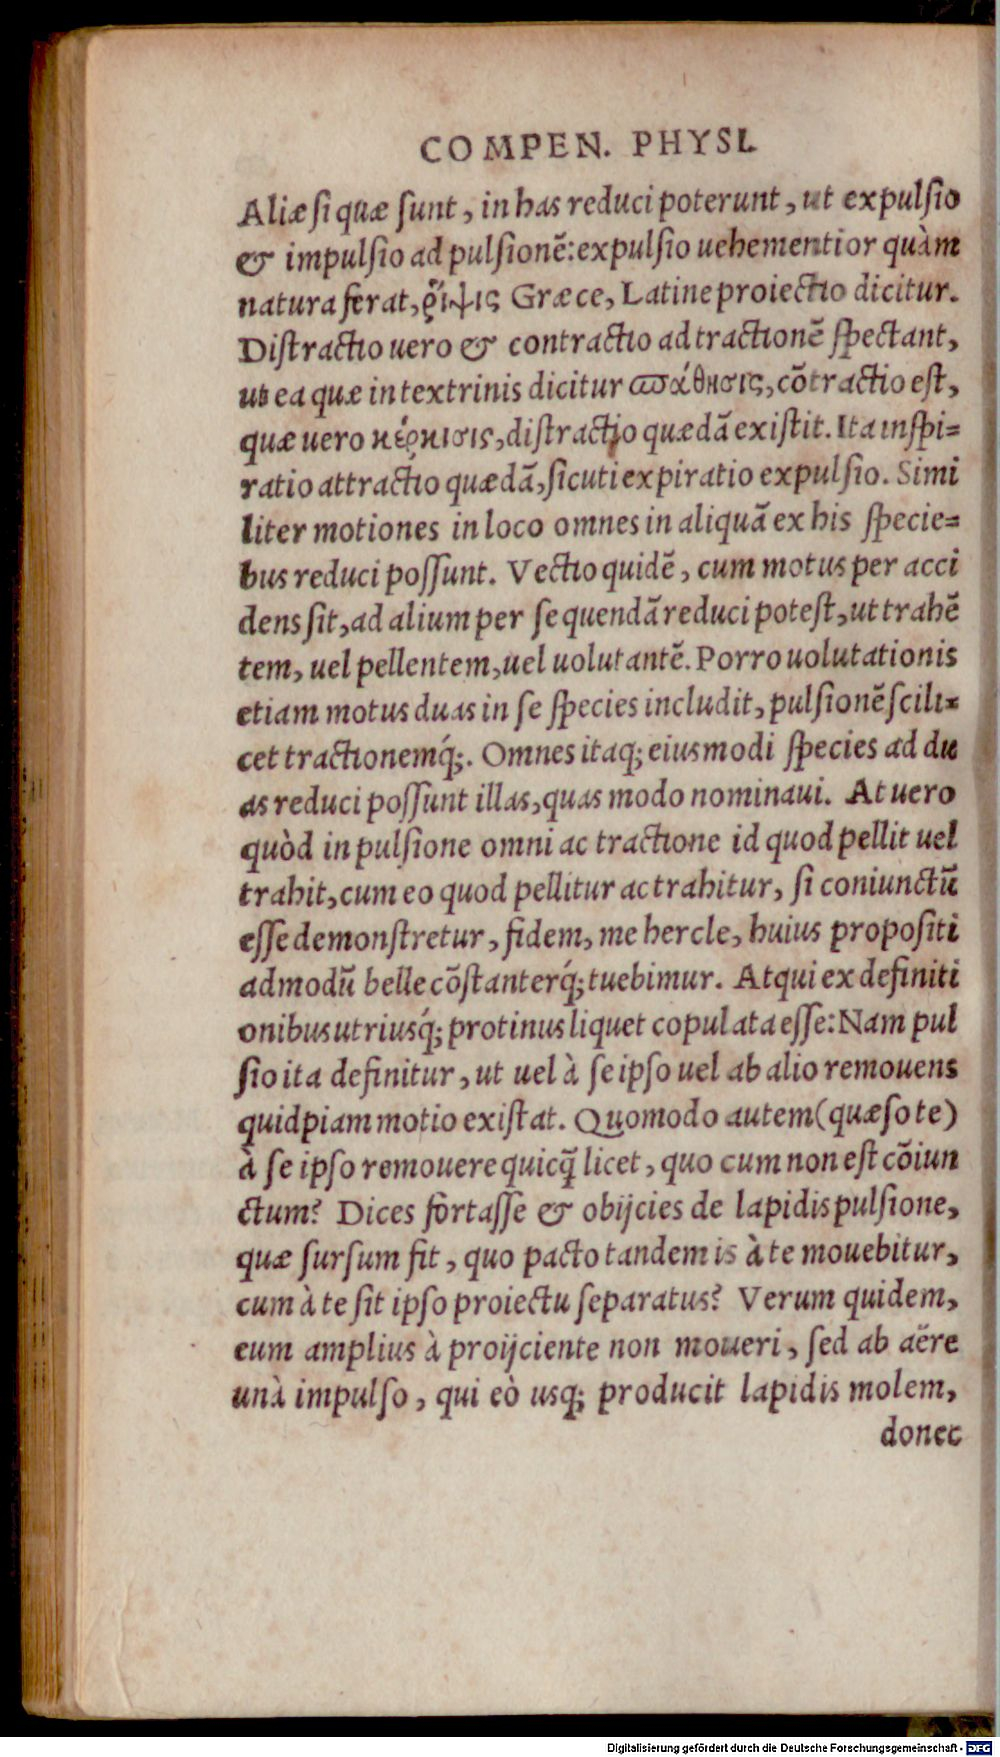 COMPEN. PHYSI.
Aliæ si quæ sunt, in has reduci poterunt, ut expulsio
& impulsio ad pulsionẽ: expulsio uehementior quàm
natura ferat, ῥίψις Græce, Latine proiectio dicitur.
Distractio uero & contractio ad tractionẽ spectant,
ut ea quæ in textrinis dicitur σπάθησις, cõtractio est,
quæ uero κέρκισις, distractio quædã existit. Ita inspi=
ratio attractio quædã, sicuti expiratio expulsio. Simi
liter motiones in loco omnes in aliquã ex his specie=
bus reduci possunt. Vectio quidẽ, cum motus per acci
dens sit, ad alium per se quendã reduci potest, ut trahẽ
tem, uel pellentem, uel uolutantẽ. Porro uolutationis
etiam motus duas in se species includit, pulsionẽ scili=
cet tractionemq́;. Omnes itaq; eiusmodi species ad du
as reduci possunt illas, quas modo nominaui. At uero
quòd in pulsione omni ac tractione id quod pellit uel
trahit, cum eo quod pellitur ac trahitur, si coniunctũ
esse demonstretur, fidem, me hercle, huius propositi
admodũ belle cõstanterq́; tuebimur. Atqui ex definiti
onibus utriusq́; protinus liquet copulata esse: Nam pul
sio ita definitur, ut uel à se ipso uel ab alio remouens
quidpiam motio existat. Quomodo autem (quæso te)
à se ipso remouere quicq̃ licet, quo cum non est cõiun
ctum? Dices fortasse & obijcies de lapidis pulsione,
quæ sursum fit, quo pacto tandem is à te mouebitur,
cum à te sit ipso proiectu separatus? Verum quidem,
eum amplius à proijciente non moueri, sed ab aëre
unà impulso, qui eò usq; producit lapidis molem,
donec
Digitalisierung gefördert durch die Deutsche Forschungsgemeinschaft - DFG